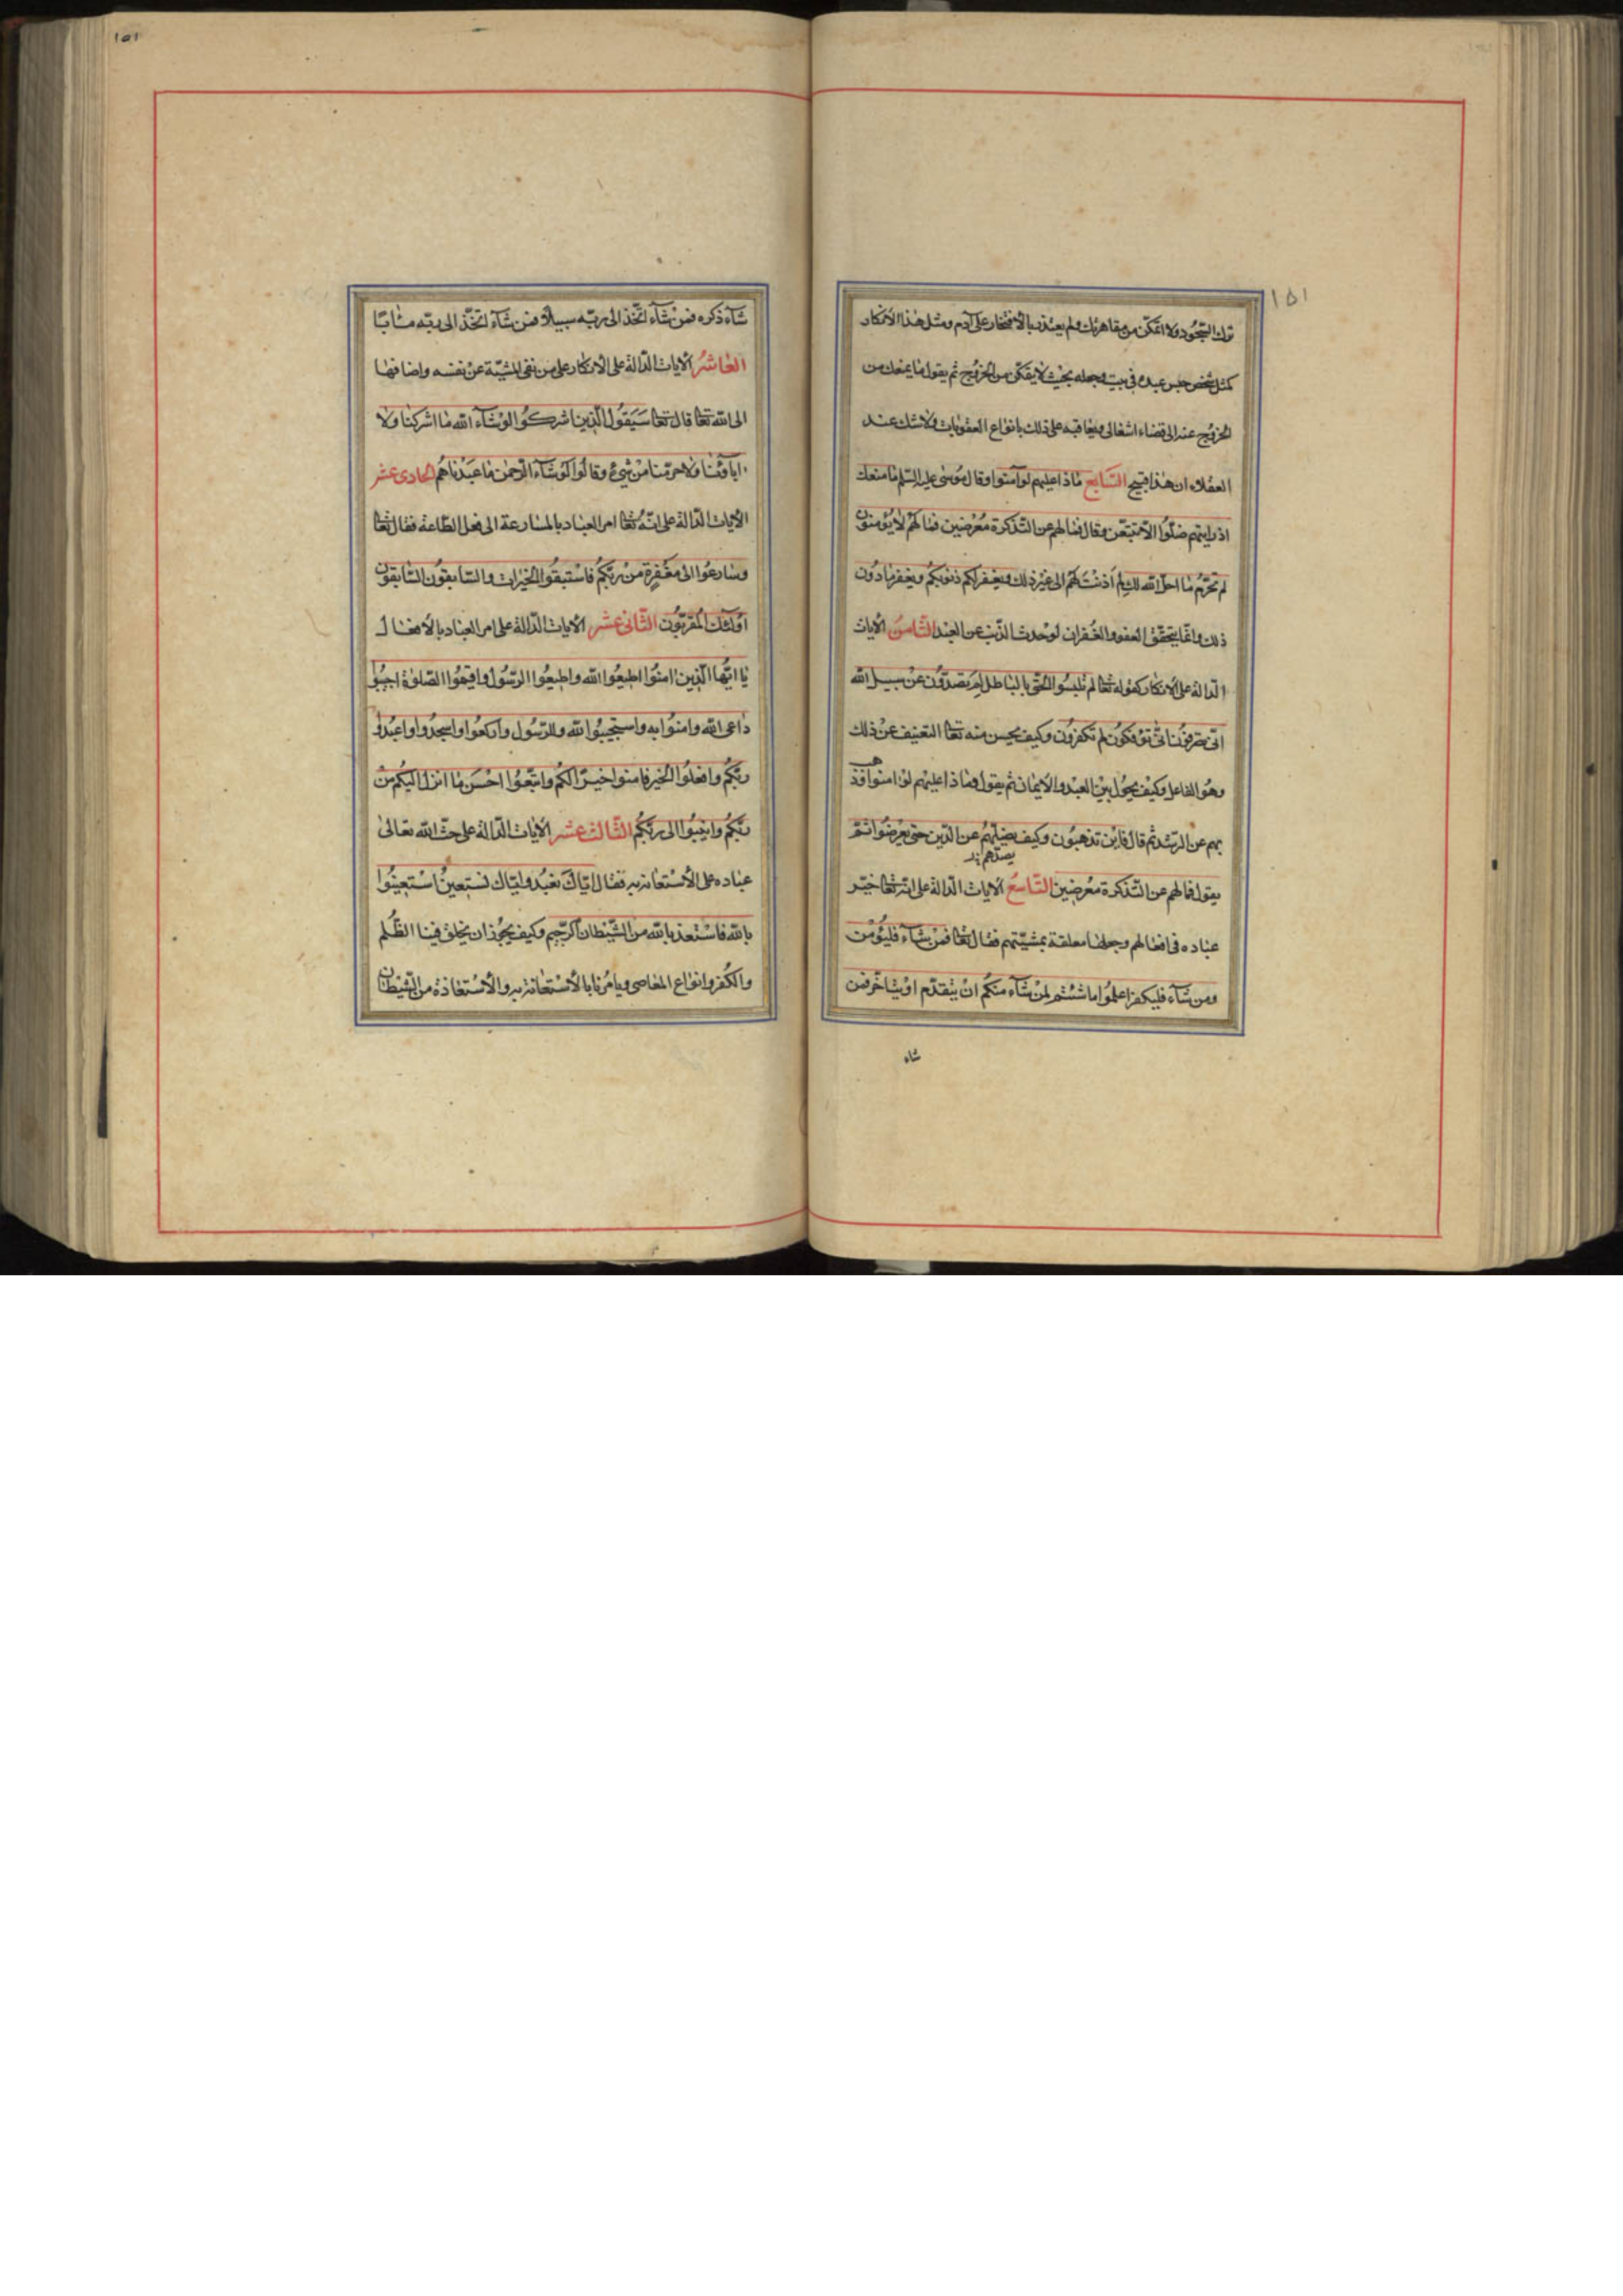 ١٥١
ترك السّجود ولا اتمكّن من مقاهرتك ولم يعتذر بالافتخار على آدم ومثل هذا الانكار
كمثل شخص حبس عبده فى بيت وجعله بحيث لا يتمكّن من الخروج ثم يقول ما يمنعك من
الخروج عنه الى قضاء اشغالى ويعاقبه على ذلك بانواع العقوبات ولا شك عند
العقلاء ان هذا قبيح السّابع ماذا عليهم لو آمنوا وقال موسى عليه السّلم ما منعك
اذ رايتهم ضلّوا الّا تتبعن وقال فما لهم عن التّذكرة معرضين فما لهم لا يؤمنون
لم تحرّم ما احلّ الله لك لم أذنت لهم الى غير ذلك ويغفر لكم ذنوبكم ويغفر ما دون
ذلك وانّما يتحقّق العفو والغفران لو حدث الذّنب عن العبد الثّامن الآيات
الدّالة على الانكار كقوله تعا لم تلبسوا الحقّ بالباطل لم تصدّون عن سبيل الله
انّى تصرفون انّى تؤفكون لم تكفرون وكيف يحسن منه تعا التعنيف عن ذلك
وهو الفاعل وكيف يحول بين العبد والايمان ثم يقول وماذا عليهم لو امنوا فذهب
بهم عن الرّشد ثم قال فاين تذهبون وكيف يضلّهم عن الدّين حتى يعرضوا ثمّ
يقول فما لهم عن التّذكرة معرضين التّاسع الآيات الدّالة على انّه تعا خيّر
عباده فى افعالهم وجعلها معلقة بمشيّتهم فقال تعا فمن شآء فليؤمن
ومن شآء فليكفر اعلموا ما شئتم لمن شآء منكم ان يتقدّم او يتاخّر فمن
شاء
١٥١
شآء ذكره فمن شآء اتّخذ الى ربّه سبيلا فمن شآء اتّخذ الى ربّه مئابًا
العاشر الآيات الدّالة على الانكار على من نفى المشيّة عن نفسه واضافها
الى الله تعا قال تعا سيقول الّذين اشركوا لو شآء الله ما اشركنا ولا
اباؤنا ولا حرّمنا من شىء وقالوا لو شآء الرّحمن ما عبدناهم الحادى عشر
الآيات الدّالة على انّه تعا امر العباد بالمسارعة الى فعل الطّاعة فقال تعا
وسارعوا الى مغفرة من ربّكم فاستبقوا الخيرات والسّابقون السّابقون
اولئك المقرّبون الثّانى عشر الآيات الدّالة على امر العباد بالافعال
يا ايّها الّذين امنوا اطيعوا الله واطيعوا الرّسول واقيموا الصّلوة اجيبوا
داعى الله وامنوا به واستجيبوا لله وللرّسول واركعوا واسجدوا واعبدوا
ربّكم وافعلوا الخير فامنوا خيرًا لكم واتّبعوا احسن ما انزل اليكم من
ربّكم وانيبوا الى ربّكم الثّالث عشر الآيات الدّالة على حثّ الله تعالى
عباده على الاستعانة به فقال ايّاك نعبد وايّاك نستعين استعينوا
بالله فاستعذ بالله من الشّيطان الرّجيم وكيف يجوز ان يخلق فينا الظّلم
والكفر وانواع المعاصى ويامرنا بالاستعانة به والاستعاذة من الشّيطان